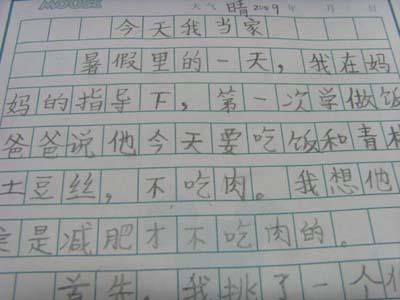 天气 晴 2009 年 月 日
今天我当家
暑假里的一天，我在妈
妈的指导下，第一次学做饭
爸爸说他今天要吃饭和青椒
土豆丝，不吃肉。我想他
定是减肥才不吃肉的。
首先，我挑了一个